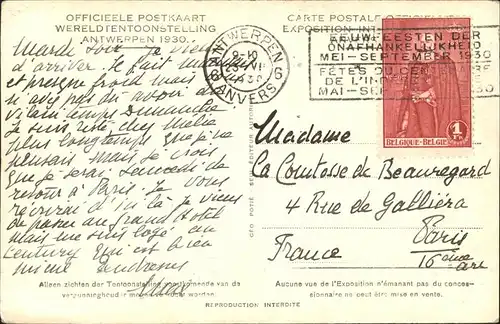 OFFICIEELE POSTKAART
WERELDTENTOONSTELLING
ANTWERPEN 1930.
CARTE POSTALE
EXPOSITION
ANTWERPEN
6 6
ANVERS
EEUWFEESTEN DER
ONAFHANKELIJKHEID
MEI-SEPTEMBER 1930
FÊTES DU
DE L'IN
MAI-SEPTEMBER
1 F
BELGIQUE-BELGIE
Mardi soir je viens
d'arriver. Il fait
et presque froid mais
n'ayez pas du avoir de
vilain temps Dimanche
Je suis resté chez
plus longtemps que je ne
pensais mais je crois
que je serai Samedi de
retour à Paris. Je vous
récrirai d'ici là je viens
de passer au grand hotel
mais me suis logé au
Century qui est bien
mieux
Madame
La Comtesse de Beauregard
4 Rue de Galliera
Paris
16ème arr
France
Alleen zichten der Tentoonstelling voortkomende van de
vergunninghouder worden.
Aucune vue de l'Exposition n'émanant pas du conces-
sionnaire ne peut être mise en vente.
REPRODUCTION INTERDITE